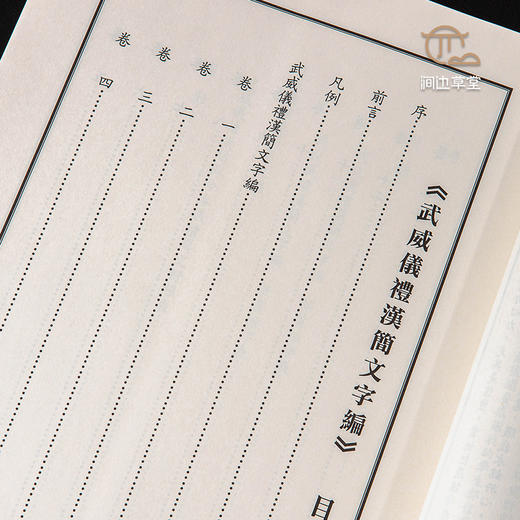 《武威儀禮漢簡文字編》目
序
前言
凡例
武威儀禮漢簡文字編
卷一
卷二
卷三
卷四
间边草堂